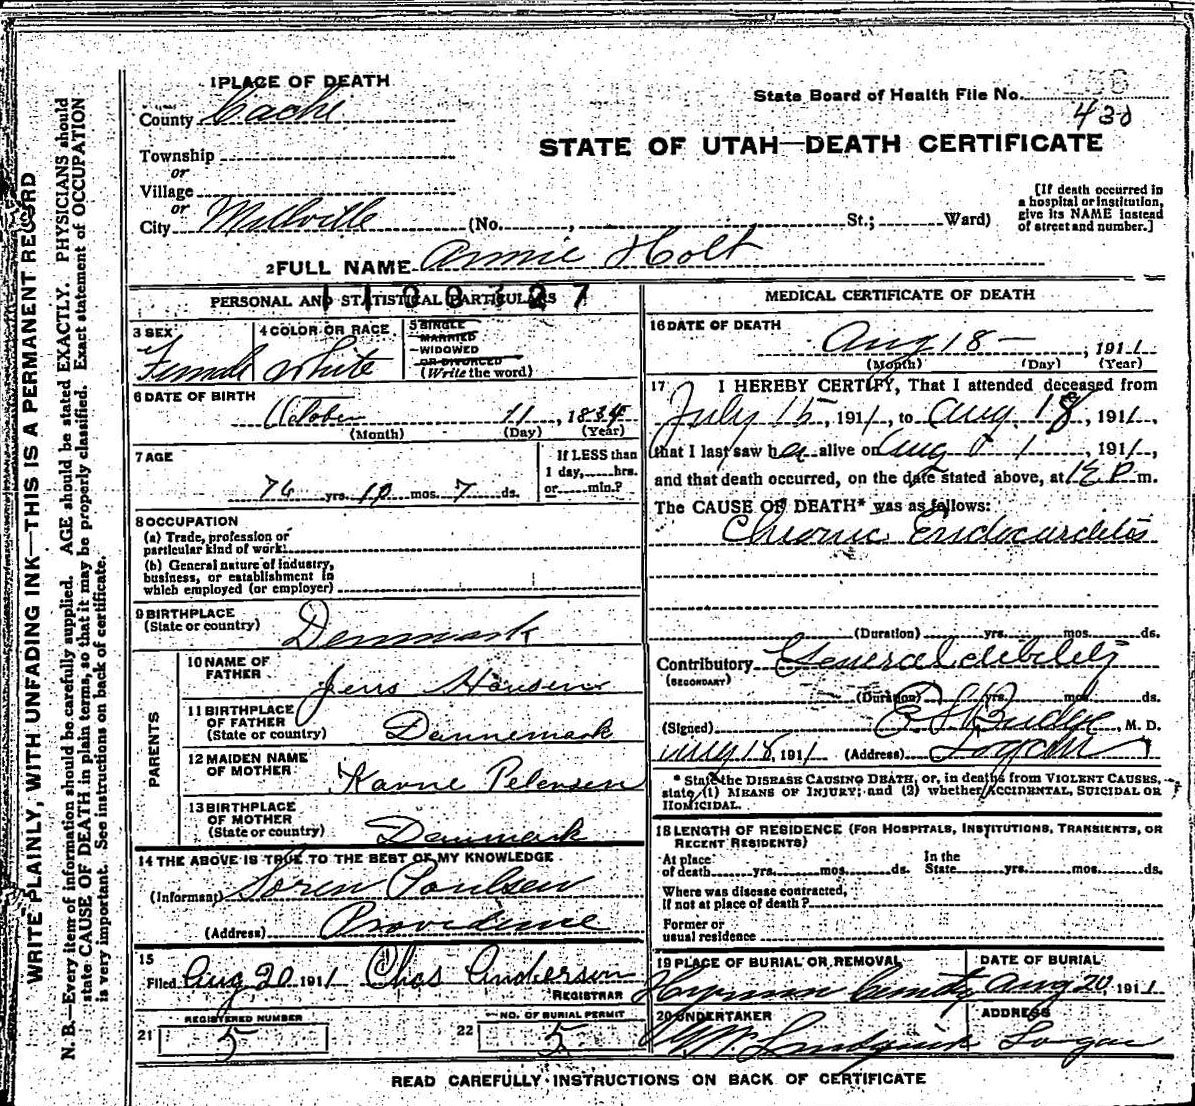 WRITE PLAINLY, WITH UNFADING INK—THIS IS A PERMANENT RECORD
N. B.—Every item of information should be carefully supplied. AGE should be stated EXACTLY. PHYSICIANS should
state CAUSE OF DEATH in plain terms, so that it may be properly classified. Exact statement of OCCUPATION
is very important. See instructions on back of certificate.
1 PLACE OF DEATH
County Cache
State Board of Health File No.
430
STATE OF UTAH—DEATH CERTIFICATE
Township
or
Village
or
City Millville (No. , St.; Ward)
[If death occurred in
a hospital or institution,
give its NAME instead
of street and number.]
2 FULL NAME Annie Holt
PERSONAL AND STATISTICAL PARTICULARS
3 SEX
Female
4 COLOR OR RACE
White
5 SINGLE
MARRIED
WIDOWED
OR DIVORCED
(Write the word)
6 DATE OF BIRTH
October 11, 1834
(Month) (Day) (Year)
7 AGE
76 yrs. 10 mos. 7 ds.
If LESS than
1 day, hrs.
or min.?
8 OCCUPATION
(a) Trade, profession or
particular kind of work
(b) General nature of industry,
business, or establishment in
which employed (or employer)
9 BIRTHPLACE
(State or country)
Denmark
PARENTS
10 NAME OF
FATHER
Jens Hansen
11 BIRTHPLACE
OF FATHER
(State or country)
Dannemark
12 MAIDEN NAME
OF MOTHER
Karne Petersen
13 BIRTHPLACE
OF MOTHER
(State or country)
Danmark
14 THE ABOVE IS TRUE TO THE BEST OF MY KNOWLEDGE
(Informant) Soren Poulsen
(Address) Providence
15
Filed Aug 20 1911 Chas Anderson
REGISTRAR
21 REGISTERED NUMBER
5
22 NO. OF BURIAL PERMIT
5
MEDICAL CERTIFICATE OF DEATH
16 DATE OF DEATH
Aug 18 — , 1911
(Month) (Day) (Year)
17 I HEREBY CERTIFY, That I attended deceased from
July 15, 1911, to Aug. 18, 1911,
that I last saw her alive on Aug 1, 1911,
and that death occurred, on the date stated above, at 12 P m.
The CAUSE OF DEATH* was as follows:
Chronic Endocarditis
(Duration) yrs. mos. ds.
Contributory General debility
(SECONDARY)
(Duration) yrs. mos. ds.
(Signed) Budge, M. D.
Aug 18, 1911 (Address) Logan
* State the DISEASE CAUSING DEATH, or, in deaths from VIOLENT CAUSES,
state (1) MEANS OF INJURY; and (2) whether ACCIDENTAL, SUICIDAL OR
HOMICIDAL.
18 LENGTH OF RESIDENCE (FOR HOSPITALS, INSTITUTIONS, TRANSIENTS, OR
RECENT RESIDENTS)
At place
of death yrs. mos. ds.
In the
State yrs. mos. ds.
Where was disease contracted,
if not at place of death?
Former or
usual residence
19 PLACE OF BURIAL OR REMOVAL
DATE OF BURIAL
Aug 20, 1911
20 UNDERTAKER
Lundquist
ADDRESS
Logan
READ CAREFULLY INSTRUCTIONS ON BACK OF CERTIFICATE